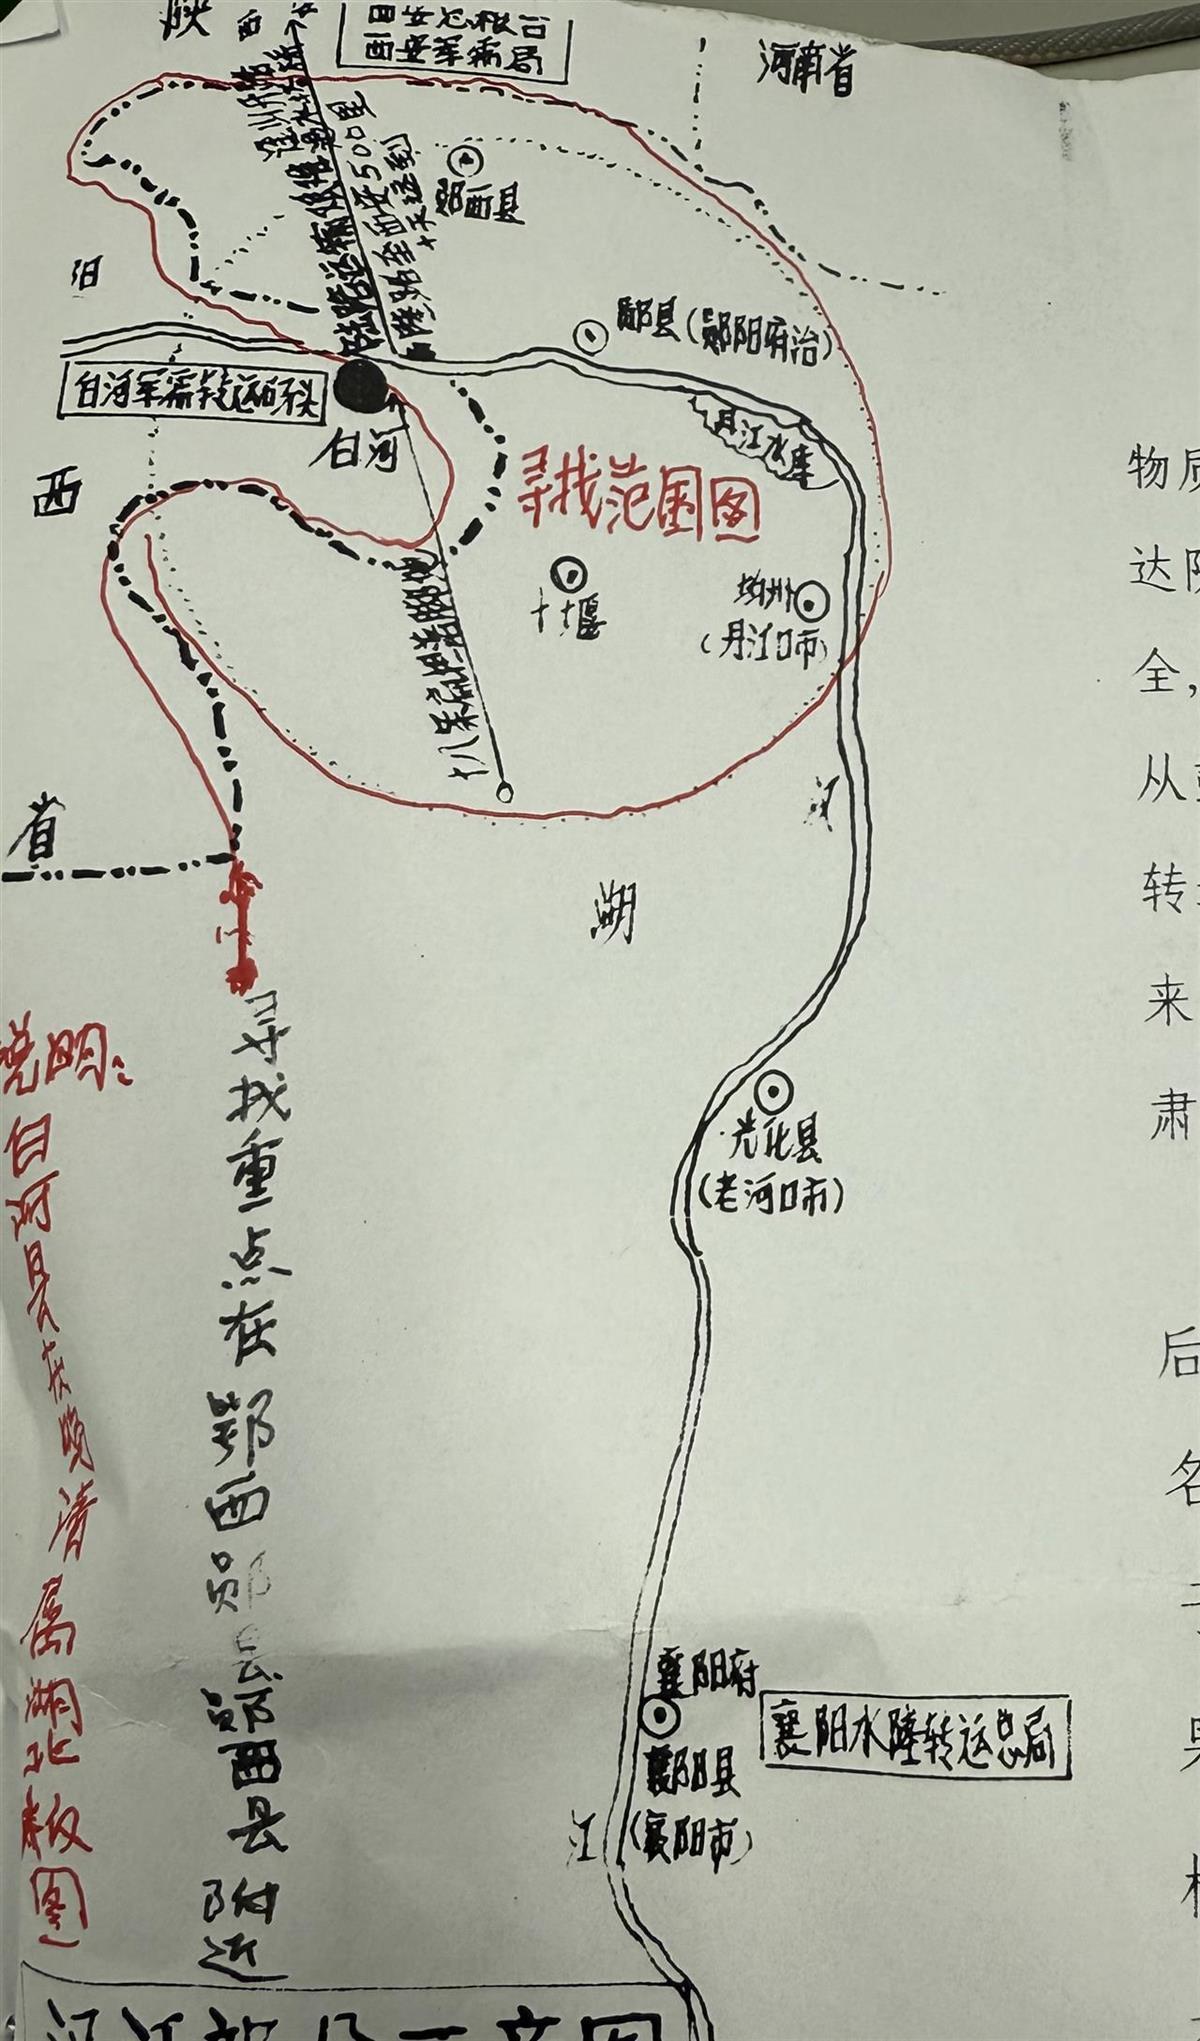 陕
西安总粮台
西安军需局
河南省
陆路至西安500里
十天运到
郧西县
郧县(郧阳府治)
白河军需转运码头
白河
丹江水库
西
寻找范围图
十堰
均州
(丹江口市)
省
汉
湖
说明:
白河县在晚清属湖北版图
寻找重点在鄂西郧县郧西县附近
光化县
(老河口市)
襄阳府
襄阳水陆转运总局
襄阳县
(襄阳市)
江
物质
达
全,
从
转
来
肃
后
名